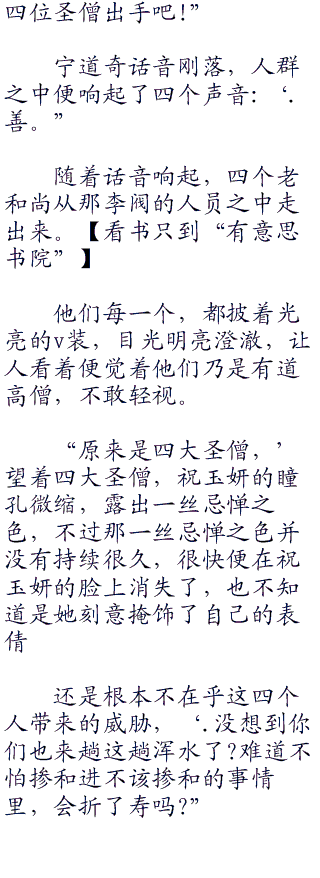 四位圣僧出手吧！”
宁道奇话音刚落，人群
之中便响起了四个声音：‘.
善。”
随着话音响起，四个老
和尚从那李阀的人员之中走
出来。【看书只到“有意思
书院”】
他们每一个，都披着光
亮的v装，目光明亮澄澈，让
人看着便觉着他们乃是有道
高僧，不敢轻视。
“原来是四大圣僧，’
望着四大圣僧，祝玉妍的瞳
孔微缩，露出一丝忌惮之
色，不过那一丝忌惮之色并
没有持续很久，很快便在祝
玉妍的脸上消失了，也不知
道是她刻意掩饰了自己的表
倩
还是根本不在乎这四个
人带来的威胁，‘.没想到你
们也来趟这趟浑水了?难道不
怕掺和进不该掺和的事情
里，会折了寿吗?”